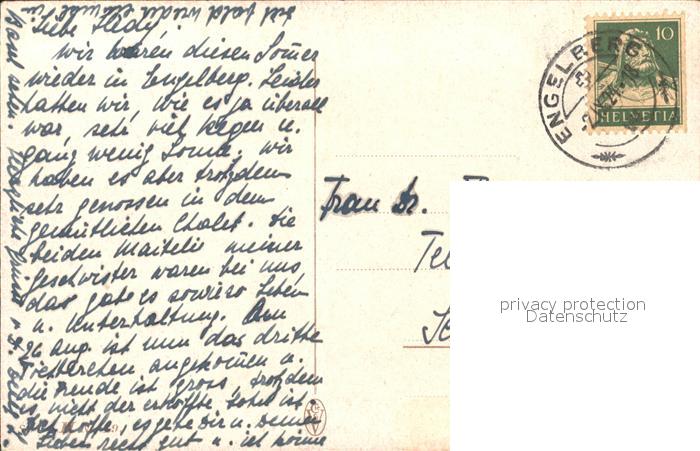 Liebe Hedy!
wir waren diesen Som̄er
wieder in Engelberg. Leider
hatten wir, wie es ja überall
war, sehr viel Regen u.
ganz wenig Sonne. Wir
haben es aber trotzdem
sehr genossen in dem
gemütlichen Chalet. Die
beiden Maitelis meiner
Geschwister waren bei uns,
da gabs sowieso Leben
u. Unterhaltung. Am
26 Aug. ist nun das dritte
angekom̄en u.
die Freude ist gross, trotzdem
es nicht der erhoffte Sohn ist.
Ich hoffe, es gehe Dir u. Deinen
Lieben recht gut u. ich könne
bald wieder einmal in
Basel sehen. Herzliche Grüsse
Frau Dr.
ENGELBERG
10
HELVETIA
privacy protection
Datenschutz